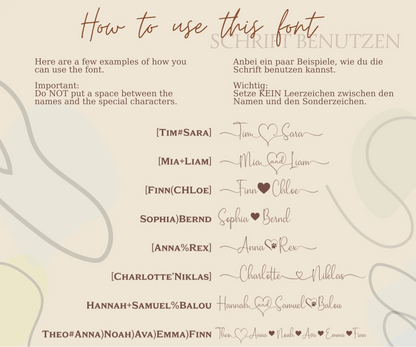 How to use this font
SCHRIFT BENUTZEN
Here are a few examples of how you
can use the font.
Important:
Do NOT put a space between the
names and the special characters.
Anbei ein paar Beispiele, wie du die
Schrift benutzen kannst.
Wichtig:
Setze KEIN Leerzeichen zwischen den
Namen und den Sonderzeichen.
[Tim#Sara] Tim Sara
[Mia+Liam] Mia and Liam
[Finn(CHLoe] Finn Chloe
Sophia)Bernd Sophia Bernd
[Anna%Rex] Anna Rex
[Charlotte*Niklas] Charlotte Niklas
Hannah+Samuel%Balou Hannah and Samuel Balou
Theo#Anna)Noah)Ava)Emma)Finn Theo Anna Noah Ava Emma Finn